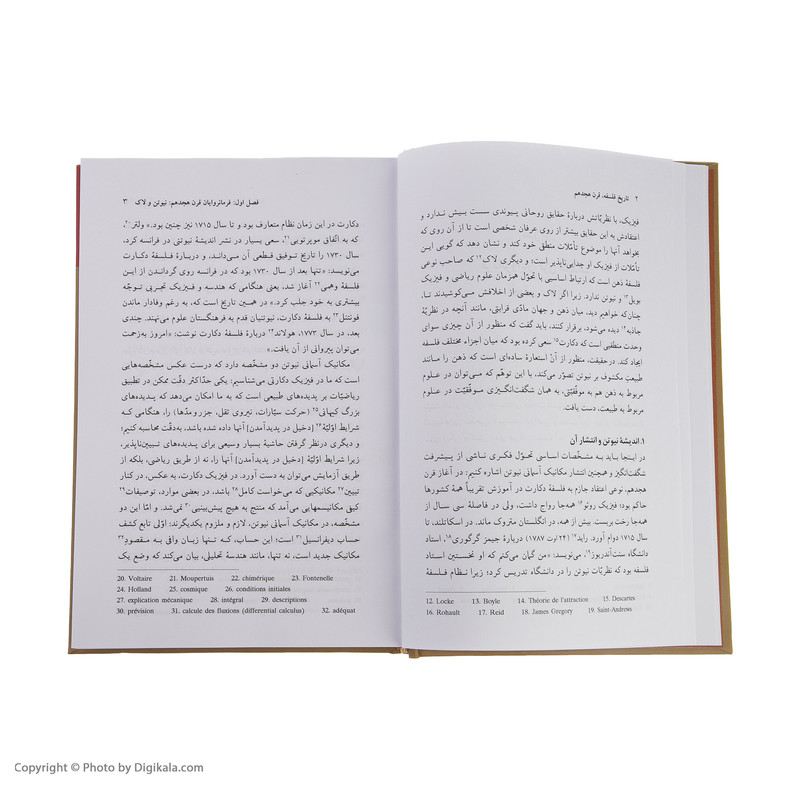 ۲ تاریخ فلسفه، قرن هجدهم
فیزیک، با نظریّاتش دربارهٔ حقایق روحانی پیوندی سست بیش ندارد و
اعتقادش به این حقایق بیشتر از روی عرفان شخصی است تا از آن روی که
بخواهد آنها را موضوع تأمّلات منطقی خود کند و نشان دهد که گویی این
تأمّلات از فیزیک او جدایی‌ناپذیر است؛ و دیگری لاک۱۲ که صاحب نوعی
فلسفهٔ ذهن است که ارتباط اساسی با تحوّل همزمان علوم ریاضی و فیزیک
بویل۱۳ و نیوتن ندارد. زیرا اگر لاک و بعضی از اخلافش می‌کوشیدند تا،
چنان‌که خواهیم دید، میان ذهن و جهان مادّی قرابتی، مانند آنچه در نظریّهٔ
جاذبه۱۴ دیده می‌شود، برقرار کنند، باید گفت که منظور از آن چیزی سوای
وحدت منطقیی است که دکارت۱۵ سعی کرده بود که میان اجزاء مختلف فلسفه
ایجاد کند. درحقیقت، منظور از آنْ استعارهٔ ساده‌ای است که ذهن را مانند
طبیعتِ مکشوف بر نیوتن تصوّر می‌کند، با این توهّم که می‌توان در علوم
مربوط به ذهن هم به موفّقیّتی، به همان شگفت‌انگیزی موفّقیّت در علوم
مربوط به طبیعت، دست یافت.
۱. اندیشهٔ نیوتن و انتشار آن
در اینجا باید به مشخّصات اساسی تحوّل فکری ناشی از پیشرفت
شگفت‌انگیز و همچنین انتشار مکانیک آسمانی نیوتن اشاره کنیم: در آغاز قرن
هجدهم، نوعی اعتقاد جازم به فلسفهٔ دکارت در آموزش تقریباً همهٔ کشورها
حاکم بود؛ فیزیک روئو۱۶ همه‌جا رواج داشت، ولی در فاصلهٔ سی سال از
همه‌جا رخت بربست. بیش از همه، در انگلستان متروک ماند. در اسکاتلند، تا
سال ۱۷۱۵ دوام آورد. راید۱۷ (۲۴ اوت ۱۷۸۷) دربارهٔ جیمز گرگوری۱۸، استاد
دانشگاه سنت‌آندریوز۱۹، می‌نویسد: «من گمان می‌کنم که او نخستین استاد
فلسفه بود که نظریّات نیوتن را در دانشگاه تدریس کرد؛ زیرا نظام فلسفهٔ
12. Locke 13. Boyle 14. Théorie de l'attraction 15. Descartes
16. Rohault 17. Reid 18. James Gregory 19. Saint-Andrews
فصل اول: فرمانروایان قرن هجدهم: نیوتن و لاک ۳
دکارت در این زمان نظام متعارف بود و تا سال ۱۷۱۵ نیز چنین بود.» ولتر۲۰،
که به اتّفاق موپرتویی۲۱، سعی بسیار در نشر اندیشهٔ نیوتنی در فرانسه کرد،
سال ۱۷۳۰ را تاریخ توفیق قطعی آن می‌داند، و دربارهٔ فلسفهٔ دکارت
می‌نویسد: «تنها بعد از سال ۱۷۳۰ بود که در فرانسه روی گرداندن از این
فلسفهٔ وهمی۲۲ آغاز شد، یعنی هنگامی که هندسه و فیزیک تجربی توجّه
بیشتری به خود جلب کرد.» در همین تاریخ است که، به رغم وفادار ماندن
فونتنل۲۳ به دکارت، نیوتنیان قدم به فرهنگستان علوم می‌نهند. چندی
بعد، در سال ۱۷۷۳، هولاند۲۴ دربارهٔ فلسفهٔ دکارت نوشت: «امروز به‌زحمت
می‌توان پیروانی از آن یافت.»
مکانیک آسمانی نیوتن دو مشخّصه دارد که درست عکس مشخّصه‌هایی
است که ما در فیزیک دکارتی می‌شناسیم: یکی حدّاکثر دقّت ممکن در تطبیق
ریاضیّات بر پدیده‌های طبیعی است که به ما امکان می‌دهد که پدیده‌های
بزرگ کیهانی۲۵ (حرکت سیّارات، نیروی ثقل، جزرومدّها) را، هنگامی که
شرایط اوّلیّهٔ۲۶ [دخیل در پدیدآمدن] آنها داده شده باشد، به‌دقّت محاسبه کنیم؛
و دیگری درنظر گرفتن حاشیهٔ بسیار وسیعی برای پدیده‌های تبیین‌ناپذیر،
زیرا شرایط اوّلیّهٔ [دخیل در پدیدآمدن] آنها را، نه از طریق ریاضی، بلکه از
طریق آزمایش می‌توان به دست آورد. در فیزیک دکارت، به عکس، در کنار
تبیین۲۷ مکانیکیی که می‌خواست کامل۲۸ باشد، در بعضی موارد، توصیفات۲۹
کیفِ مکانیسمهایی می‌آمد که منتج به هیچ پیش‌بینیی۳۰ نمی‌شد. و امّا این دو
مشخّصه، در مکانیک آسمانی نیوتن، لازم و ملزوم یکدیگرند: اوّلی تابع کشف
حساب دیفرانسیل۳۱ است؛ این حساب، که تنها زبان وافی به مقصود۳۲
مکانیک جدید است، نه تنها، مانند هندسهٔ تحلیلی، بیان می‌کند که وضع یک
20. Voltaire 21. Moupertuis 22. chimérique 23. Fontenelle
24. Holland 25. cosmique 26. conditions initiales
27. explication mécanique 28. intégral 29. descriptions
30. prévision 31. calcule des fluxions (differential calculus) 32. adéquat
Copyright © Photo by Digikala.com